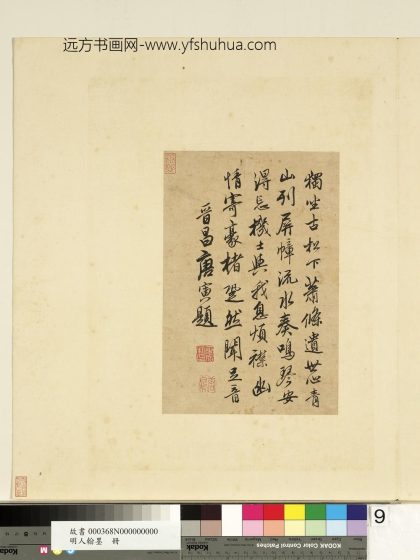 远方书画网-www.yfshuhua.com
獨坐古松下蕭條遺世心青
山列屏幛流水奏鳴琴安
得忘機士與我息煩襟幽
情寄豪楮跫然聞足音
晉昌唐寅題
9
故書 000368N000000000
明人翰墨 冊
Kodak
KODAK Color Control Patches